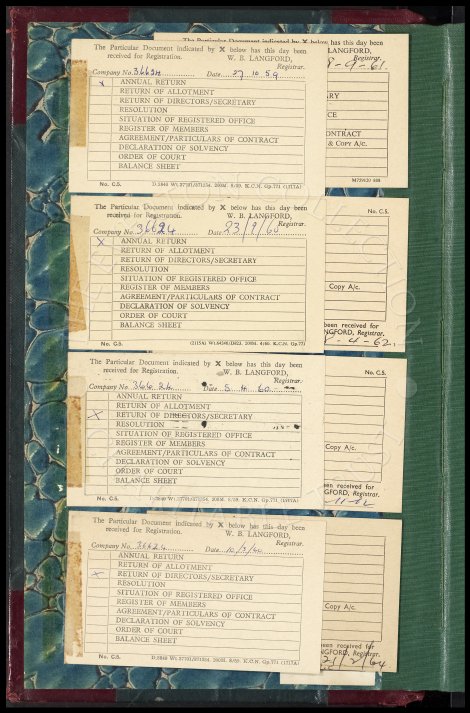 The Particular Document indicated by X below has this day been
received for Registration. W. B. LANGFORD,
Registrar.
Company No. 36624 Date 27.10.59
X ANNUAL RETURN
RETURN OF ALLOTMENT
RETURN OF DIRECTORS/SECRETARY
RESOLUTION
SITUATION OF REGISTERED OFFICE
REGISTER OF MEMBERS
AGREEMENT/PARTICULARS OF CONTRACT
DECLARATION OF SOLVENCY
ORDER OF COURT
BALANCE SHEET
No. C.5.
below has this day been
LANGFORD,
Registrar.
8-4-61.
ARY
CE
ONTRACT
& Copy A/c.
The Particular Document indicated by X below has this day been
received for Registration. W. B. LANGFORD,
Registrar.
Company No. 36624 Date 23/9/60
X ANNUAL RETURN
RETURN OF ALLOTMENT
RETURN OF DIRECTORS/SECRETARY
RESOLUTION
SITUATION OF REGISTERED OFFICE
REGISTER OF MEMBERS
AGREEMENT/PARTICULARS OF CONTRACT
DECLARATION OF SOLVENCY
ORDER OF COURT
BALANCE SHEET
No. C.5.
No. C.5.
Copy A/c.
been received for
NGFORD, Registrar.
8-4-62.
The Particular Document indicated by X below has this day been
received for Registration. W. B. LANGFORD,
Registrar.
Company No. 36624 Date 5 4 60
ANNUAL RETURN
RETURN OF ALLOTMENT
X RETURN OF DIRECTORS/SECRETARY
RESOLUTION
SITUATION OF REGISTERED OFFICE
REGISTER OF MEMBERS
AGREEMENT/PARTICULARS OF CONTRACT
DECLARATION OF SOLVENCY
ORDER OF COURT
BALANCE SHEET
No. C.5.
No. C.5.
Copy A/c.
een received for
GFORD, Registrar.
-11-62
The Particular Document indicated by X below has this day been
received for Registration. W. B. LANGFORD,
Registrar.
Company No. 36624 Date 10/3/60
ANNUAL RETURN
RETURN OF ALLOTMENT
X RETURN OF DIRECTORS/SECRETARY
RESOLUTION
SITUATION OF REGISTERED OFFICE
REGISTER OF MEMBERS
AGREEMENT/PARTICULARS OF CONTRACT
DECLARATION OF SOLVENCY
ORDER OF COURT
BALANCE SHEET
No. C.5.
Copy A/c.
een received for
NGFORD, Registrar.
21/2/64